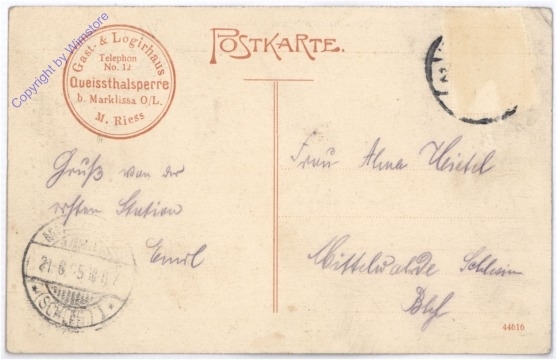 POSTKARTE.
Gast- & Logirhaus
Telephon
No. 12
Queissthalsperre
b. Marklissa O/L.
M. Riess
Copyright by Wimstore
Gruß von der
ersten Station
Emil
Frau Alma
Mittelwalde Schlesien
21.6.
(SCHLES
44616